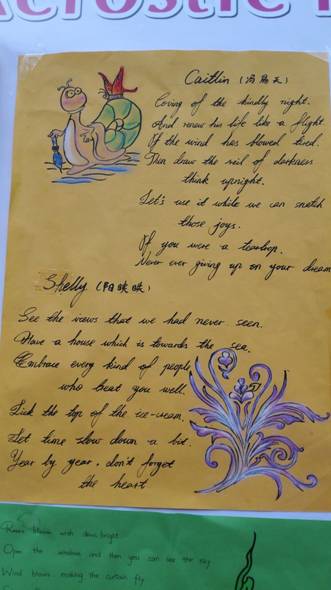 Acrostic
Caitlin
Coving of the kindly night.
And renew his life like a flight.
If the wind has blowed tired.
Then draw the veil of darkness
think upright.
Let's use it while we can snatch
those joys.
If you were a teardrop.
Never ever giving up on your dream
Shelly
See the views that we had never seen.
Have a house which is towards the sea.
Embrace every kind of people
who treat you well.
Lick the top of the ice-cream.
Let time slow down a bit.
Year by year, don't forget
the heart
bloom with dews bright
Open the window and then you can see the sky
Wind blows making the curtain fly